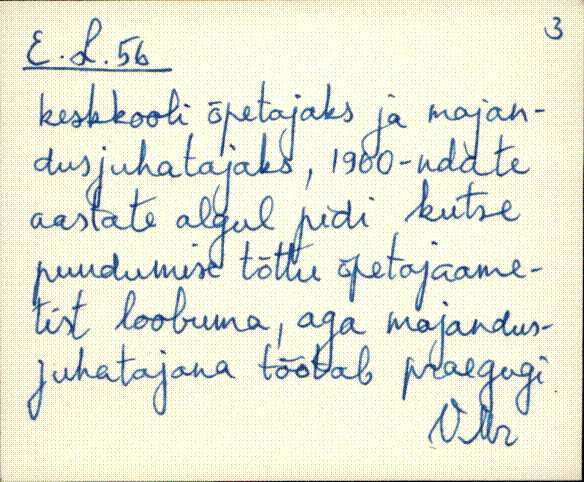 3
E.L.56
keskkooli õpetajaks ja majan-
dusjuhatajaks, 1900-ndate
aastate algul pidi kutse
puudumise tõttu õpetajaame-
tist loobuma, aga majandus-
juhatajana töötab praegugi